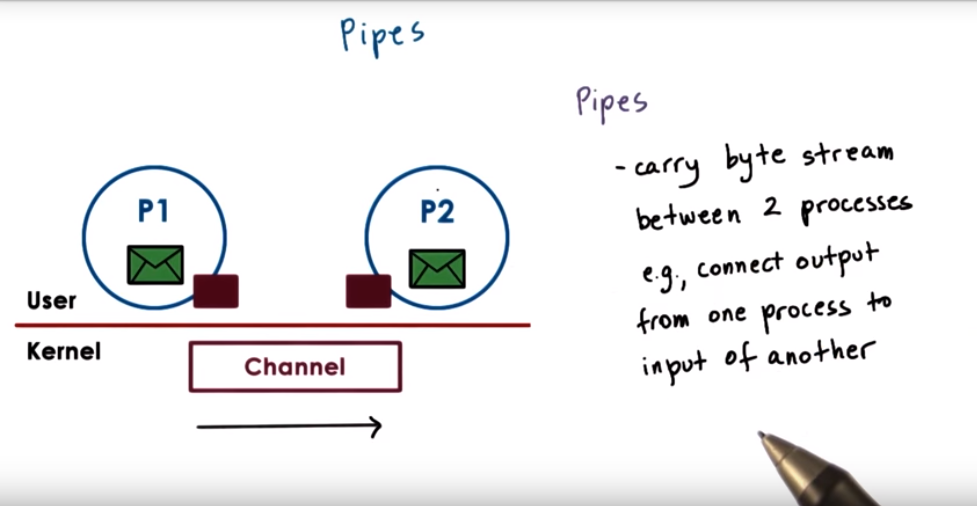 Pipes
P1
P2
User
Kernel
Channel
Pipes
- carry byte stream
between 2 processes
e.g., connect output
from one process to
input of another